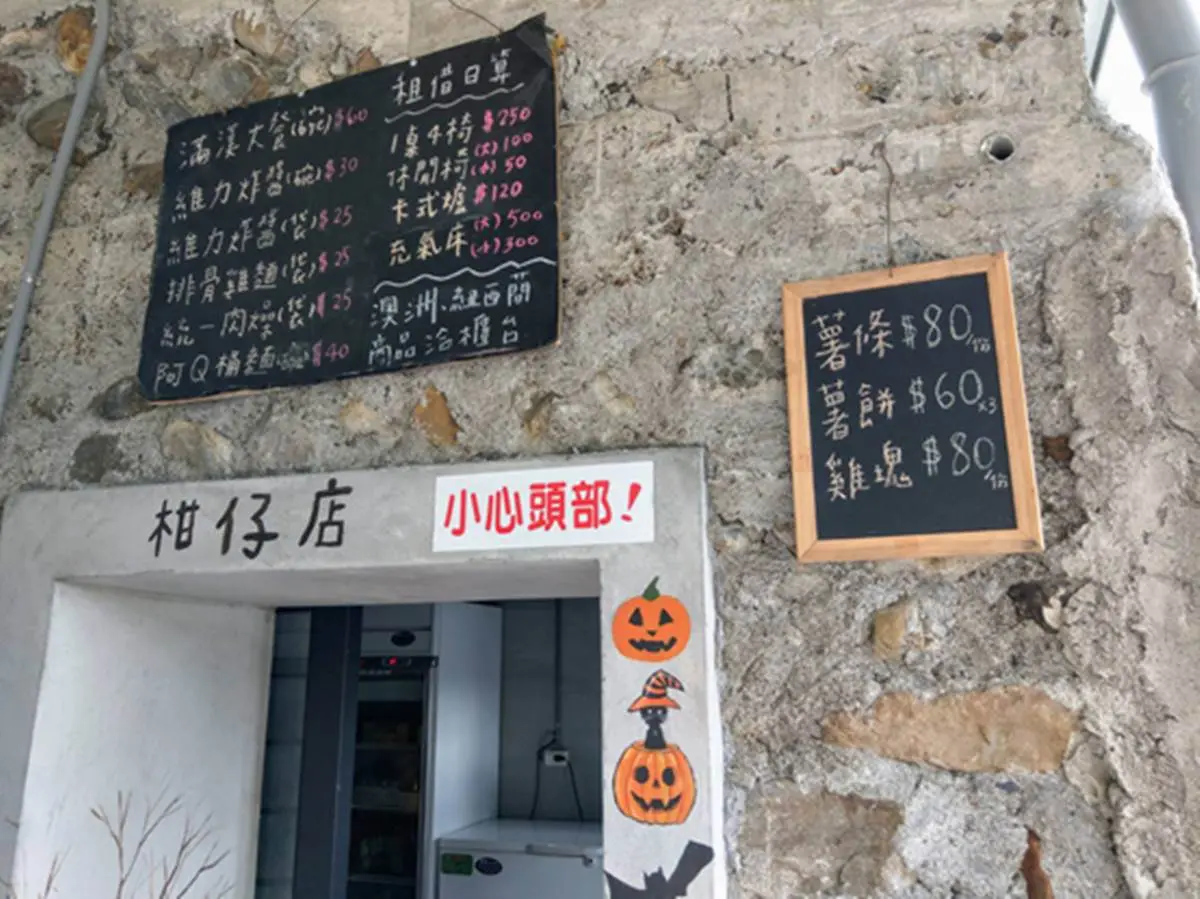 滿漢大餐(碗)$60
維力炸醬(碗)$30
維力炸醬(袋)$25
排骨雞麵(袋)$25
統一肉燥(袋)$25
阿Q桶麵 $40
租借日算
1桌4椅 $250
休閒椅 (大)100
(小)50
卡式爐 $120
充氣床 (大)500
(小)300
澳洲、紐西蘭
商品洽櫃台
薯條 $80/份
薯餅 $60x3
雞塊 $80/份
柑仔店
小心頭部!